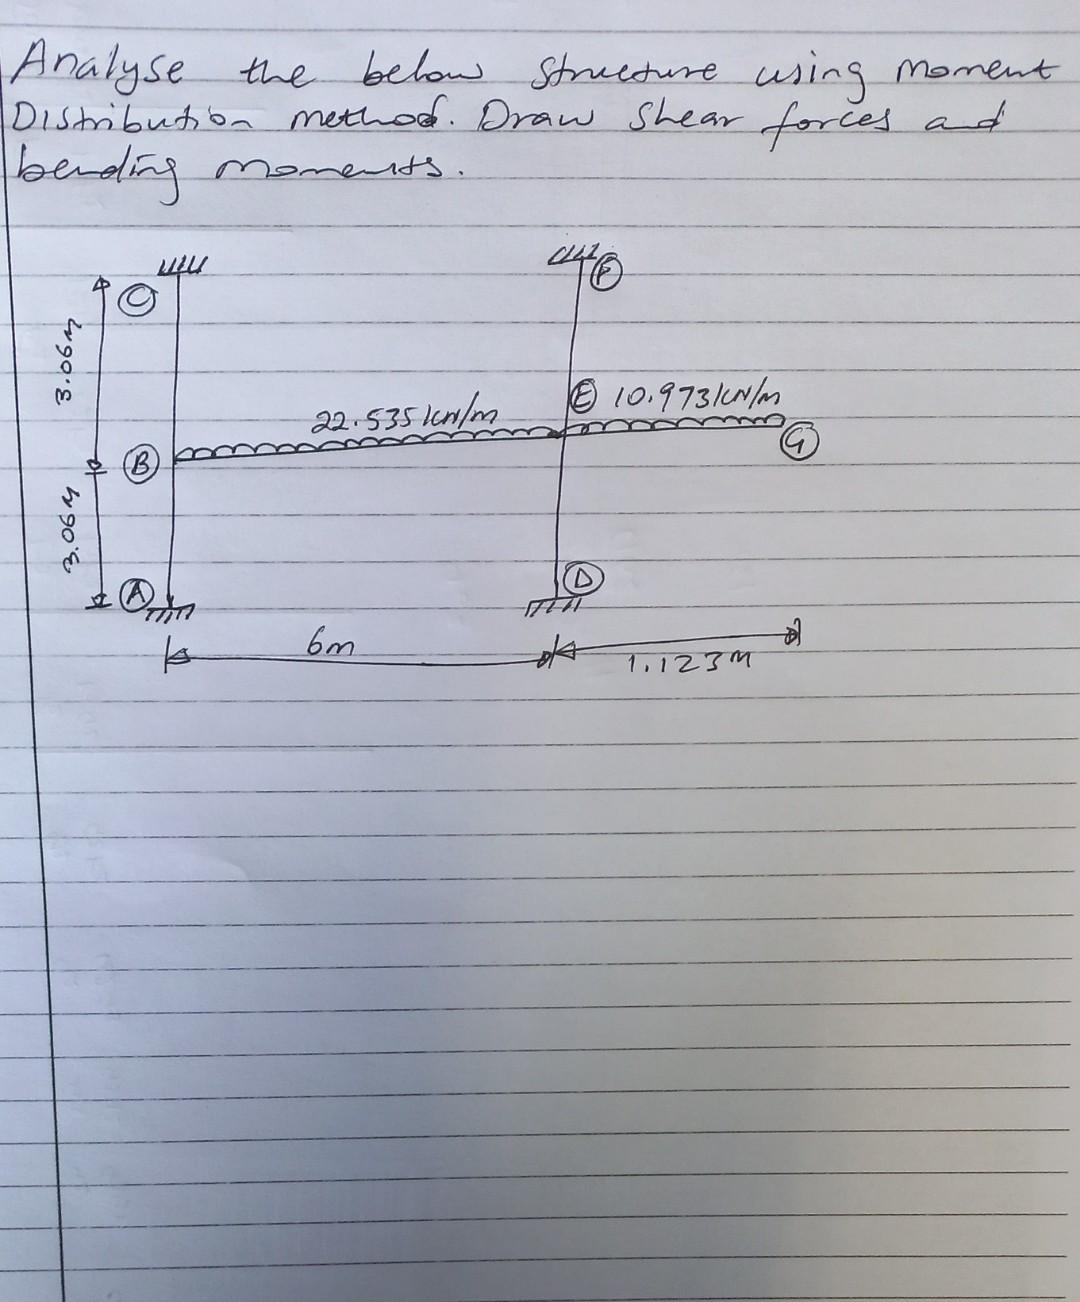 Analyse the below structure using moment
Distribution method. Draw shear forces and
bending moments.
C
F
3.06m
E 10.973kN/m
22.535kN/m
B
G
3.06m
A
D
6m
1.123m